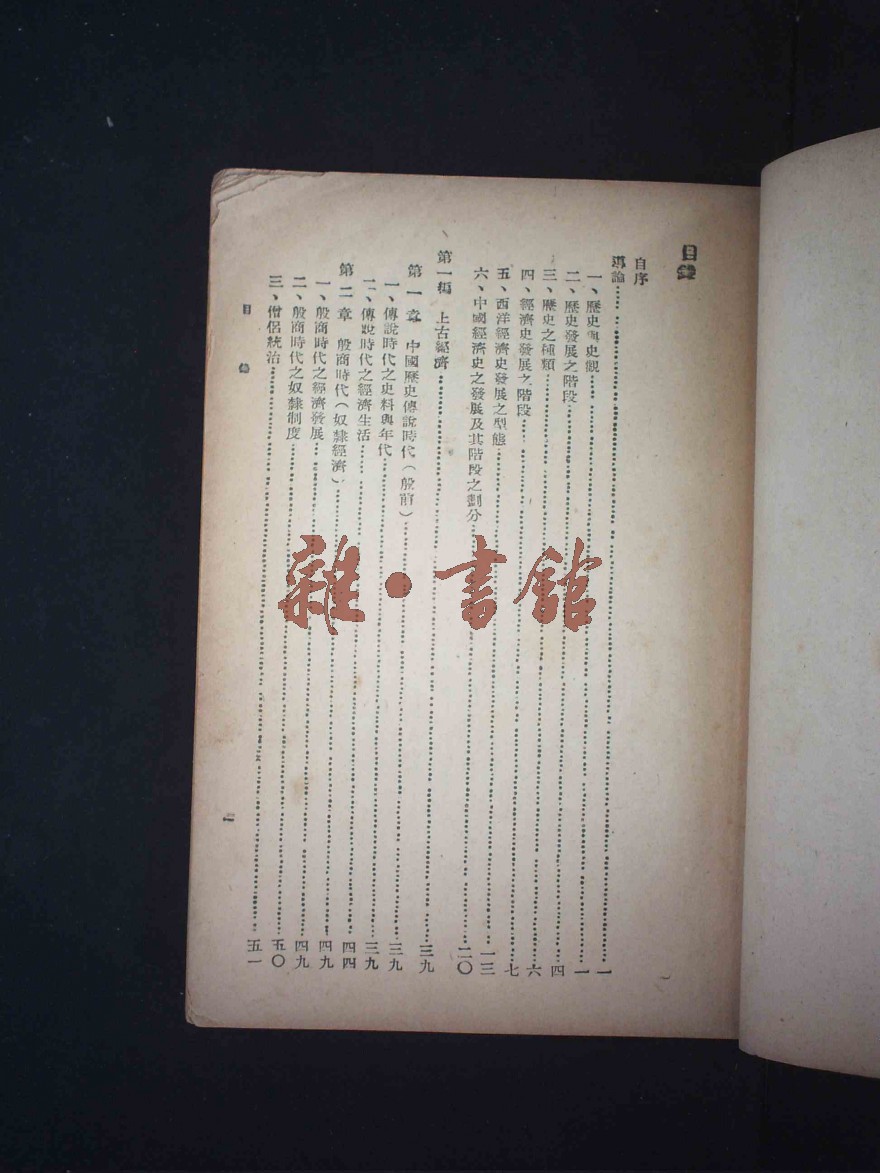 目錄
自序
導論……一
一、歷史與史觀……一
二、歷史發展之階段……四
三、歷史之種類……六
四、經濟史發展之階段……七
五、西洋經濟史發展之型態……一三
六、中國經濟史之發展及其階段之劃分……二〇
第一編 上古經濟……三九
第一章 中國歷史傳說時代(殷前)……三九
一、傳說時代之史料與年代……三九
二、傳說時代之經濟生活……四四
第二章 殷商時代(奴隸經濟)……四九
一、殷商時代之經濟發展……四九
二、殷商時代之奴隸制度……五〇
三、僧侶統治……五一
目錄
一
雜·書館